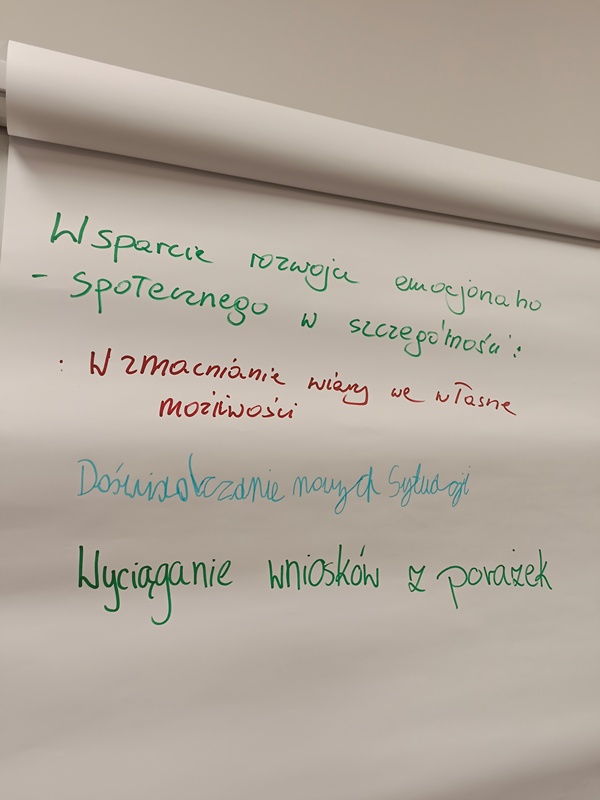 Wsparcie rozwoju emocjonalno
- społecznego w szczególności:
: Wzmacnianie wiary we własne
możliwości
Doświadczanie nowych sytuacji
Wyciąganie wniosków z porażek